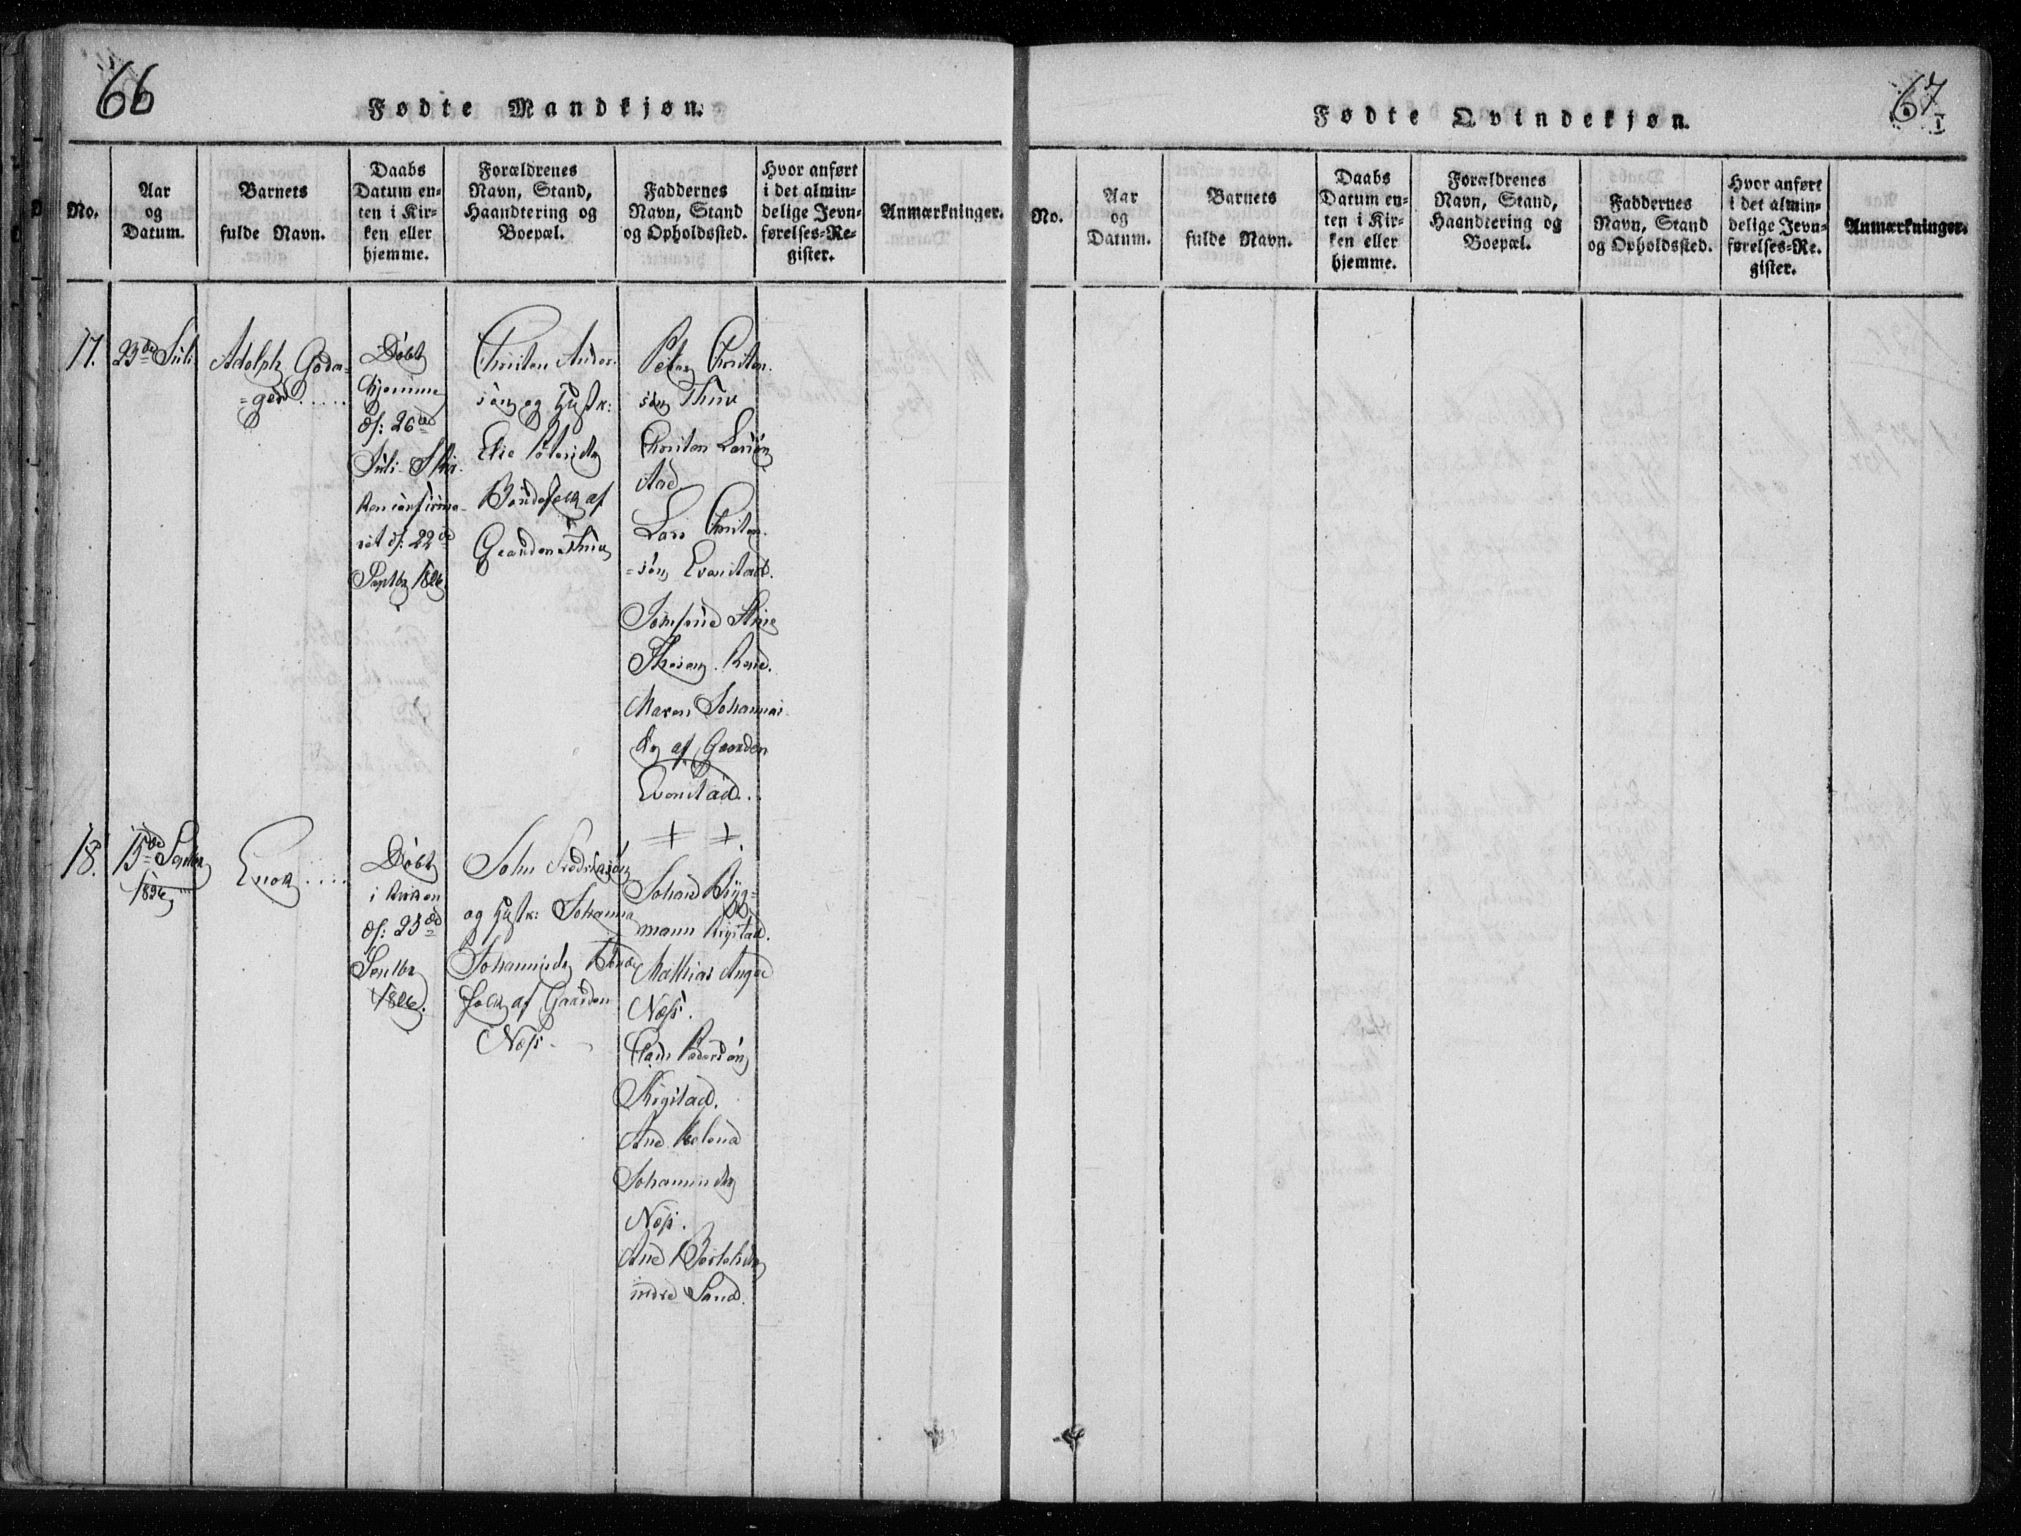 66
Fødte Mandkjøn.
No.
Aar
og
Datum.
Barnets
fulde Navn.
Daabs
Datum en-
ten i Kir-
ken eller
hjemme.
Forældrenes
Navn, Stand,
Haandtering og
Boepæl.
Faddernes
Navn, Stand
og Opholdssted.
Hvor anført
i det almin-
delige Jevn-
førelses-Re-
gister.
Anmærkninger.
17.
23de Juli
Adolph Goda-
=ger.....
Døbt
hjemme
d: 26de
Juli
confirme-
ret d: 22de
Septbr 1826
Christen Ander-
sön og Hustr:
Else Pedersdtr
Böndefolk af
Gaarden Thuv
Peder Christen-
sön Thuv
Christen Larsön
Aad
Lars Christen-
=sön Evenstad.
Jomfrue Stine
Maren Johannes-
dtr af Gaarden
Evenstad.
18.
15de Septbr
1826
Enok.....
Döbt
i Kirken
d: 25de
Septbr
1826.
John Fredriksön
og Hustr: Johanna
Johannisdtr Bönde
folk af Gaarden
Næss.
+ +
Johand Byg-
mann Rigstad.
Mathias Aagde
Næss.
Clads Pedersön
Rigstad.
Ane Helena
Johannisdtr
Næss.
Ane Bertelsdtr
indre Sand.
67
I
Fødte Qvindekjøn.
No.
Aar
og
Datum.
Barnets
fulde Navn.
Daabs
Datum en-
ten i Kir-
ken eller
hjemme.
Forældrenes
Navn, Stand,
Haandtering og
Boepæl.
Faddernes
Navn, Stand
og Opholdssted.
Hvor anført
i det almin-
delige Jevn-
førelses-Re-
gister.
Anmærkninger.